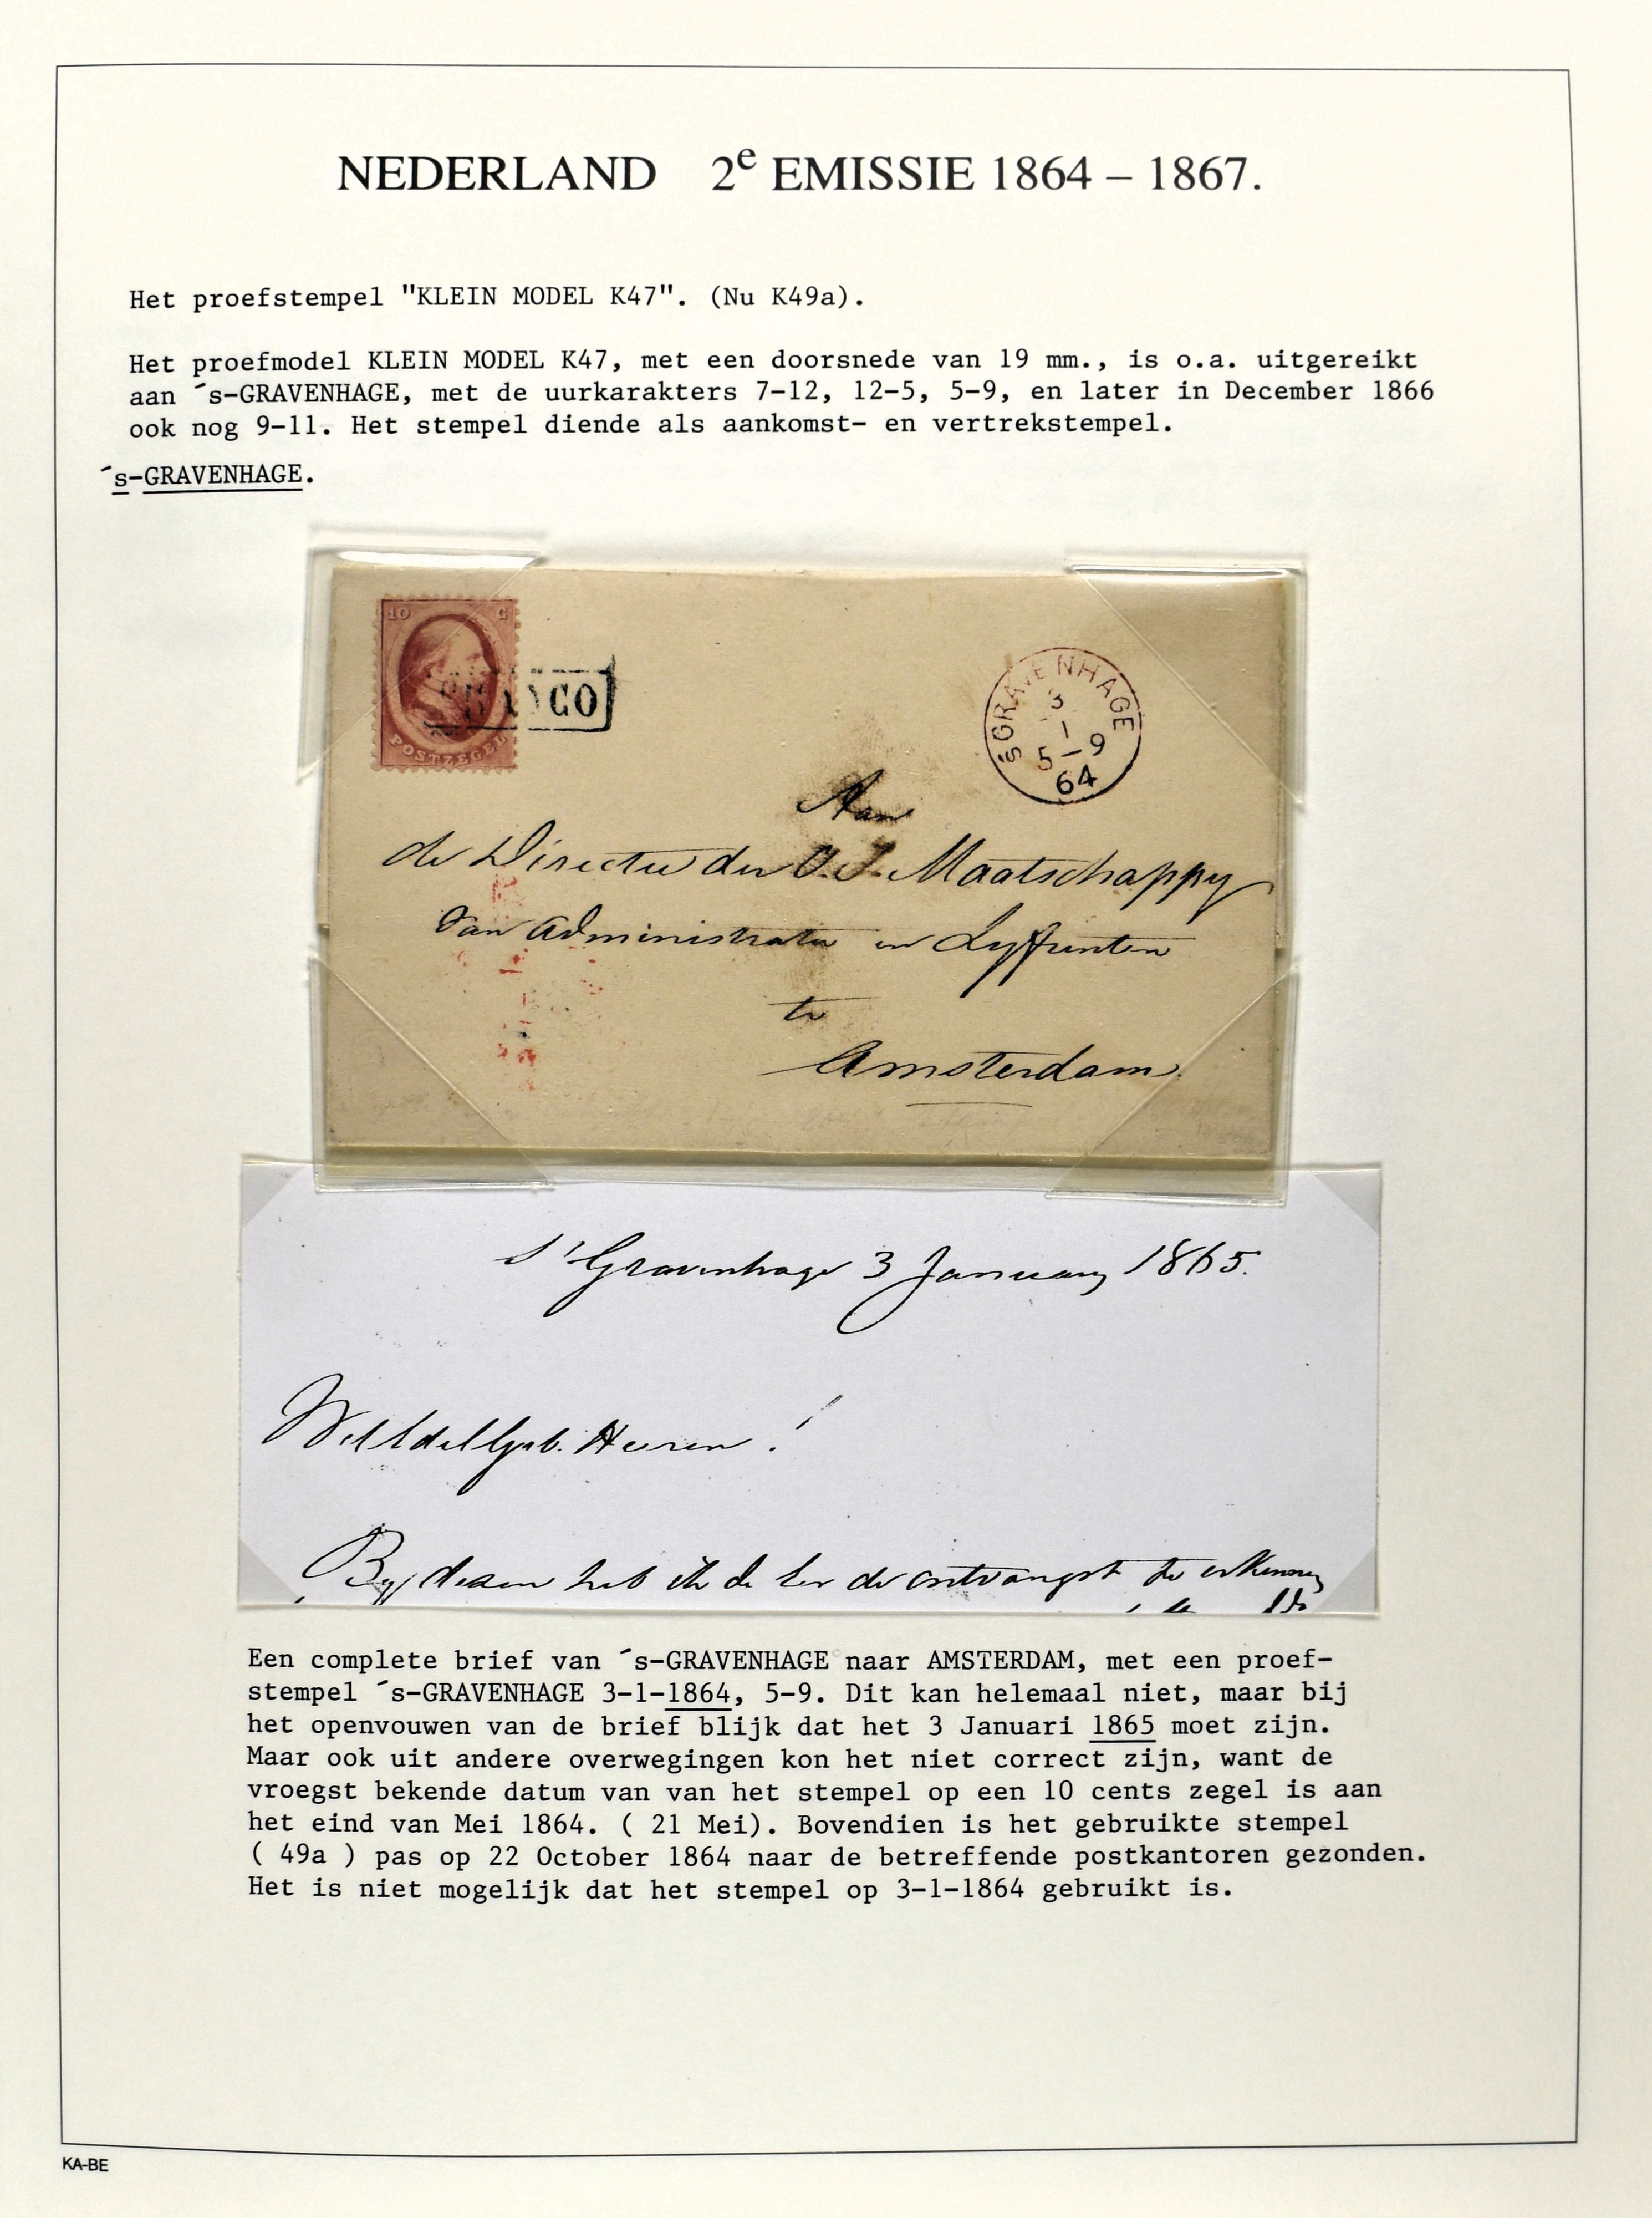 NEDERLAND 2e EMISSIE 1864 – 1867.
Het proefstempel "KLEIN MODEL K47". (Nu K49a).
Het proefmodel KLEIN MODEL K47, met een doorsnede van 19 mm., is o.a. uitgereikt
aan ´s-GRAVENHAGE, met de uurkarakters 7-12, 12-5, 5-9, en later in December 1866
ook nog 9-11. Het stempel diende als aankomst- en vertrekstempel.
´s-GRAVENHAGE.
10 C
POSTZEGEL
FRANCO
'sGRAVENHAGE
3
1
5-9
64
Aan
de Directie der O. I. Maatschappy
van Administratie en Lyfrenten
te
Amsterdam.
s'Gravenhage 3 January 1865.
WelEdelGeb. Heeren!
By deezen heb ik de eer de ontvangst te erkennen
Een complete brief van ´s-GRAVENHAGE naar AMSTERDAM, met een proef-
stempel ´s-GRAVENHAGE 3-1-1864, 5-9. Dit kan helemaal niet, maar bij
het openvouwen van de brief blijk dat het 3 Januari 1865 moet zijn.
Maar ook uit andere overwegingen kon het niet correct zijn, want de
vroegst bekende datum van van het stempel op een 10 cents zegel is aan
het eind van Mei 1864. ( 21 Mei). Bovendien is het gebruikte stempel
( 49a ) pas op 22 October 1864 naar de betreffende postkantoren gezonden.
Het is niet mogelijk dat het stempel op 3-1-1864 gebruikt is.
KA-BE